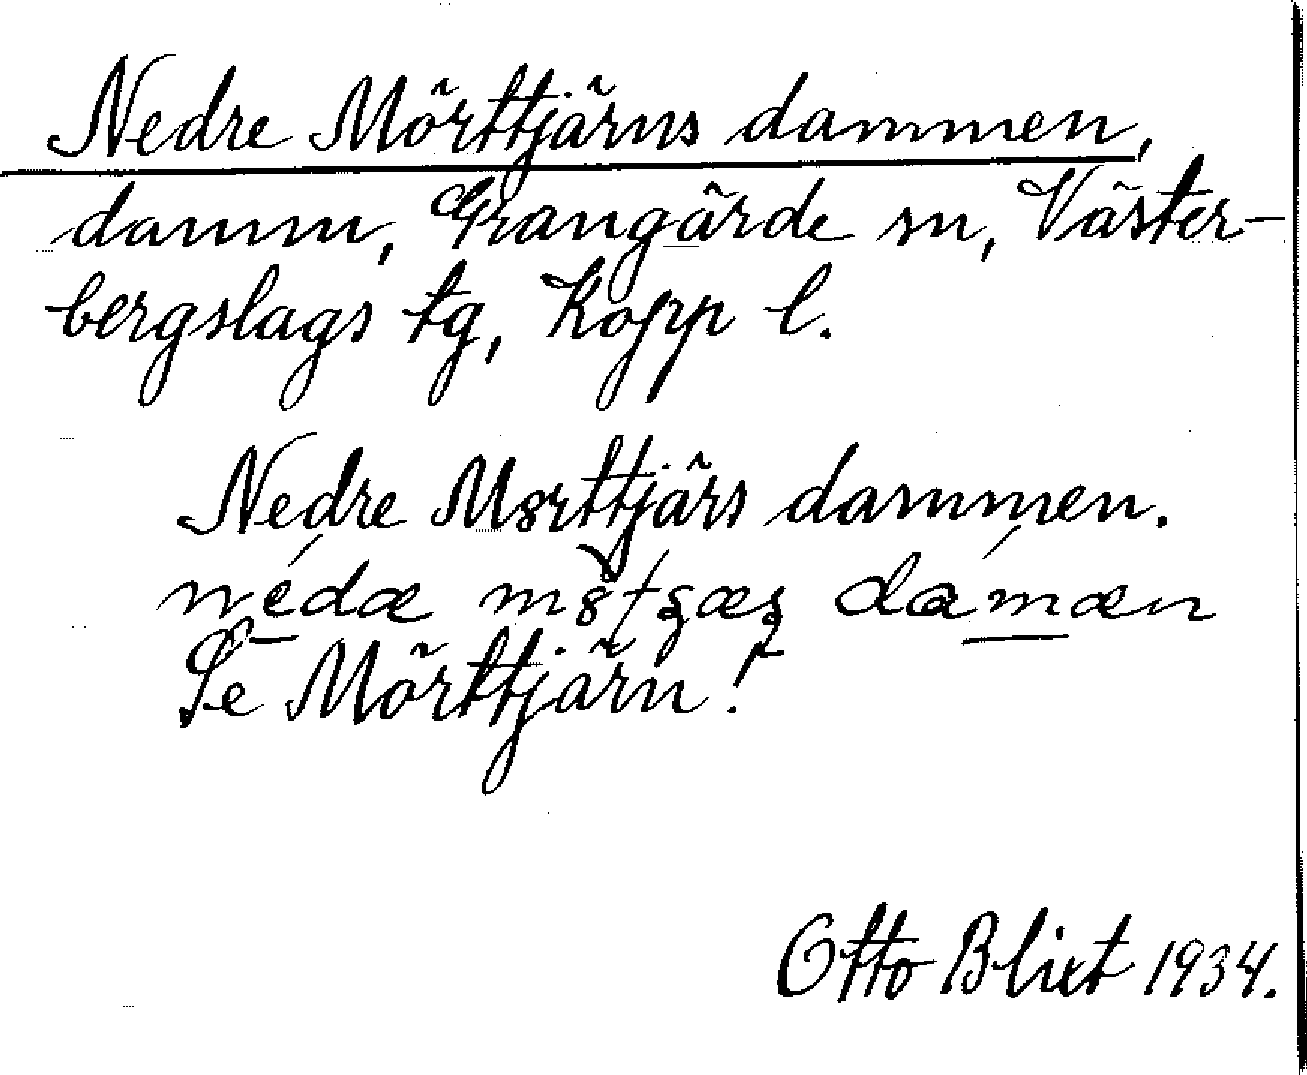 Nedre Mörttjärns dammen,
damm, Grangärde sn, Väster-
bergslags tg, Kopp l.
Nedre Mørttjärs dammen.
nédæ
Se Mörttjärn!
Otto Blixt 1934.